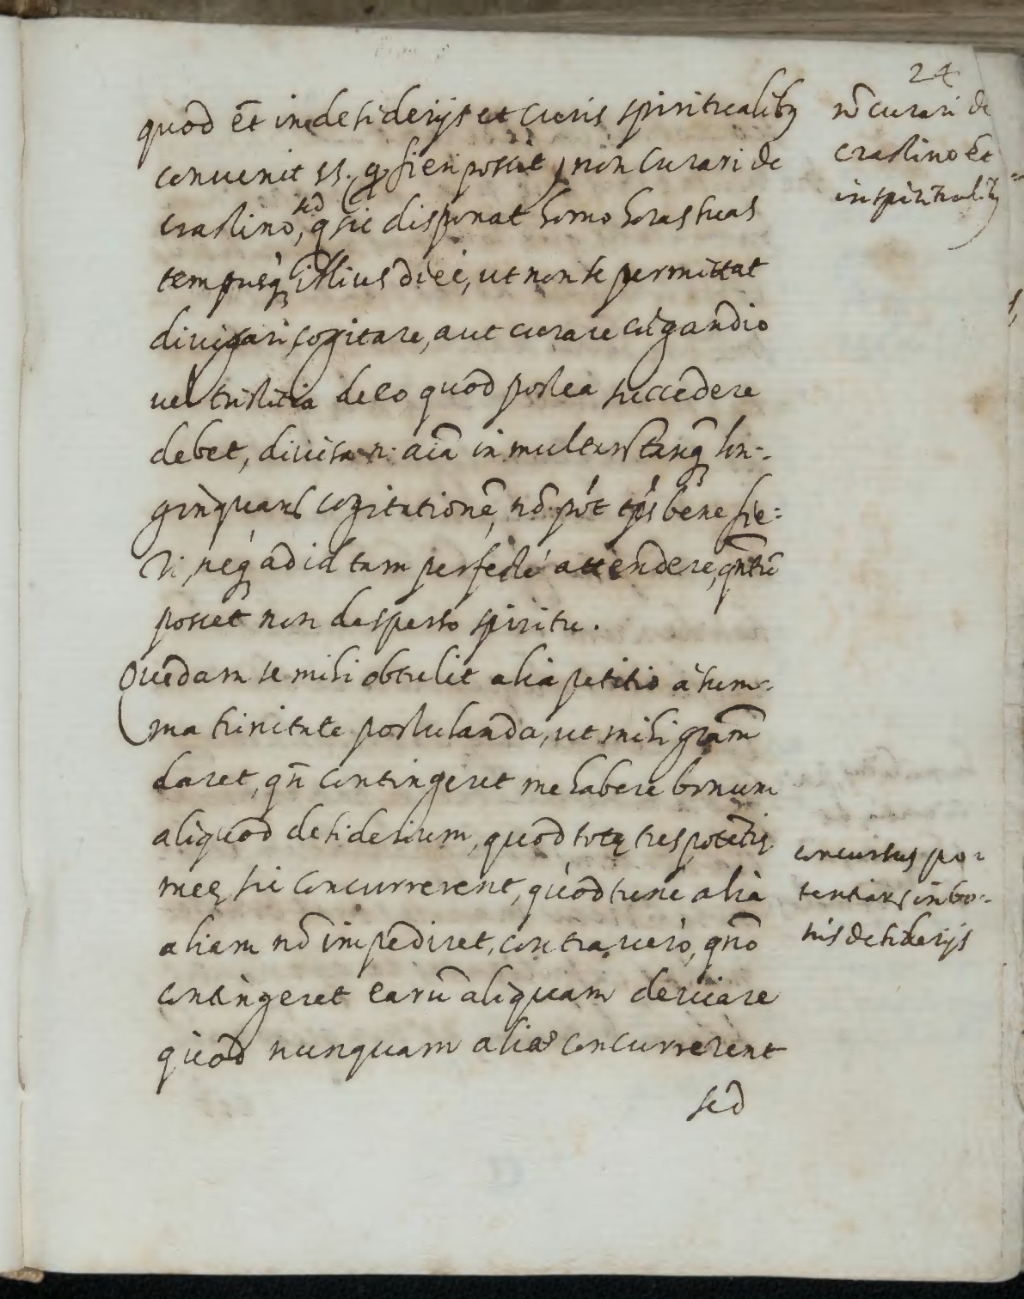 24
quod et̄ in desiderijs et curis spiritualibꝫ
conuenit ss. ꝙ si fieri posset, non curari de
crastino, sed q sic disponat homo horas suas
tempusq̃ illius diei, ut non se permittat
cogitare, aut curare cū gandio
uel tristitia de eo quod postea succedere
debet, diuisa n. aīa in multas tanq̃ lon-
ginquas cogitationē, nō pōt bene fie-
ri, neq̃ ad id tam perfecte attendere, qn̄tū
posset non desperso spiritu.
Quedam se mihi obtulit alia petitio à sum-
ma trinitate postulanda, ut mihi gr̃am
daret, qn̄ contingeret me habere bonum
aliquod desiderium, quod totę tres potētię
meę sic concurrerent, quod tunc alia
aliam nō impediret, contra uero, qn̄o
contingeret earū aliquam deuiare
quod nunquam alias concurrerent
sed
nō curari de
crastino et
in spiritualibꝫ
concursus po-
tentiarū in bo-
nis desiderijs